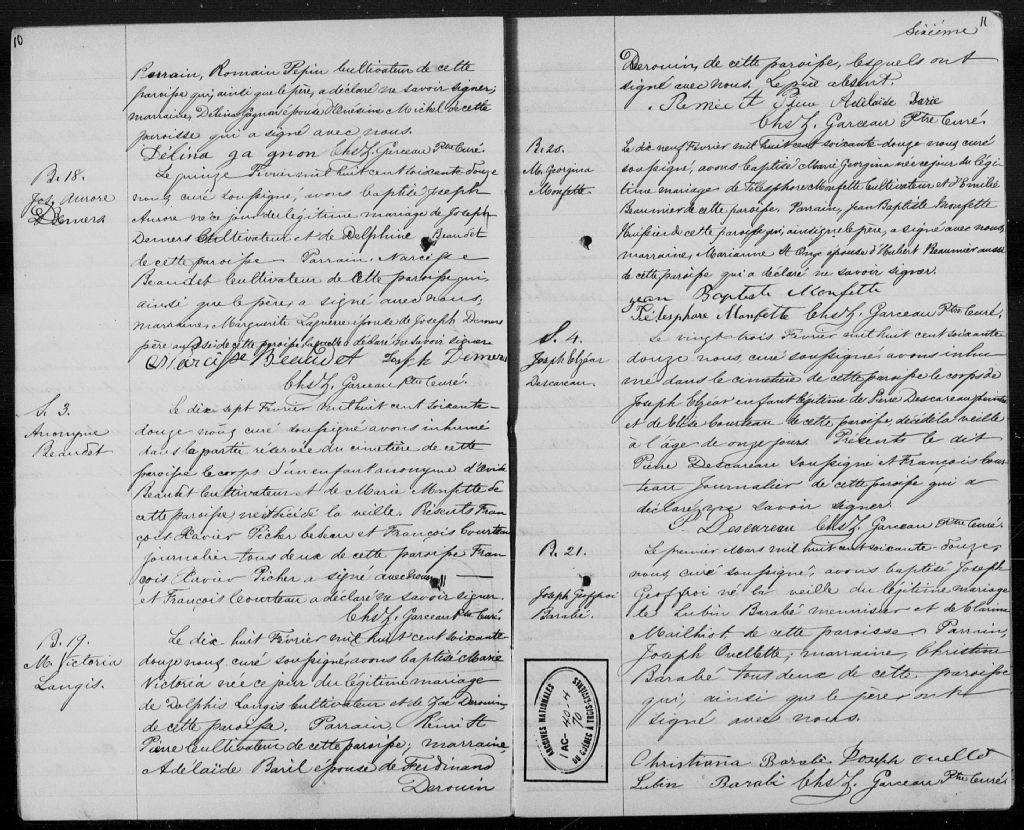 10
Parrain, Romain Pepin Cultivateur de cette
paroisse qui, ainsi que le père, a déclaré ne savoir signer;
marraine, Délina Gagnon épouse d'Onésime Michel de cette
paroisse qui a signé avec nous.
Délina ga gnon Chs Z. Garceau Ptre Curé.
B. 18.
Jos. Aurore
Demers
Le quinze Février mil huit cent soixante douze
nous, curé soussigné, avons baptisé Joseph
Aurore né ce jour du légitime mariage de Joseph
Demers Cultivateur et de Delphine Beaudet
de cette paroisse. Parrain, Narcisse
Beaudet Cultivateur de cette paroisse qui,
ainsi que le père, a signé avec nous;
marraine, Marguerite Laguerre épouse de Joseph Demers
père aussi de cette paroisse laquelle a déclaré ne savoir signer.
Narcisse Beaudet Joseph Demers
Chs Z. Garceau Ptre Curé.
S. 3.
Anonyme
Beaudet
Le dix sept Février mil huit cent soixante-
douze nous curé soussigné avons inhumé
dans la partie réservée du cimetière de cette
paroisse le corps d'un enfant anonyme d'
Beaudet Cultivateur et de Marie Monfette de
cette paroisse, né et décédé la veille. Présents Fran
çois Xavier Picher bedeau et François Courteau
journalier tous deux de cette paroisse Fran
çois Xavier Picher a signé avec nous
et François Courteau a déclaré ne savoir signer
Chs Z. Garceau Ptre Curé.
B. 19.
M. Victoria
Langis.
Le dix huit Février mil huit cent soixante
douze nous curé soussigné, avons baptisé Marie
Victoria née ce jour du légitime mariage
de Dolphis Langis Cultivateur et de Zoé Derouin
de cette paroisse. Parrain, Rémi St
Pierre Cultivateur de cette paroisse; marraine
Adélaïde Baril épouse de Ferdinand
Derouin
11
Sixième
Derouin, de cette paroisse, lesquels ont
signé avec nous. Le père absent.
Remie St Adelaide Barie
Chs Z. Garceau Ptre Curé
B. 20.
M. Georgina
Monfette
Le dix neuf Février mil huit cent soixante douze nous curé
soussigné, avons baptisé Marie Georgina née ce jour du légi
time mariage de Télesphore Monfette Cultivateur et d'Emilie
Beaumier de cette paroisse. Parrain, Jean Baptiste Monfette
Huissier de cette paroisse qui, ainsi que le père, a signé avec nous,
marraine, Marianne St Onge épouse d'Hubert Beaumier aussi
de cette paroisse qui a déclaré ne savoir signer.
jean Baptiste Monfette
Télesphore Monfette Chs Z. Garceau Ptre Curé.
S. 4.
Joseph Elzéar
Descareau.
Le vingt trois Février mil huit cent soixante
douze nous, curé soussigné, avons inhu
mé dans le cimetière de cette paroisse le corps de
Joseph Elzéar enfant légitime de Pierre Descareau
et de Elise Courteau de cette paroisse, décédé la veille
à l'âge de onze jours. Présents le dit
Pierre Descareau soussigné et François Cour
teau journalier de cette paroisse qui a
déclaré ne savoir signer.
P Descareau Chs Z. Garceau Ptre Curé.
B. 21.
Joseph Geoffroi
Barabé.
Le premier Mars mil huit cent soixante-douze,
nous, curé soussigné, avons baptisé Joseph
Geoffroi né la veille du légitime mariage
de Lubin Barabé meunier et de Clarina
Mailhiot de cette paroisse. Parrain,
Joseph Ouellette; marraine, Christine
Barabé tous deux de cette paroisse
qui, ainsi que le père ont
signé avec nous.
Christiana Barabé Joseph ouellet
Lubin Barabé Chs Z. Garceau Ptre Curé
ARCHIVES NATIONALES
IAC-40-4
70
DU QUÉBEC À TROIS-RIVIÈRES